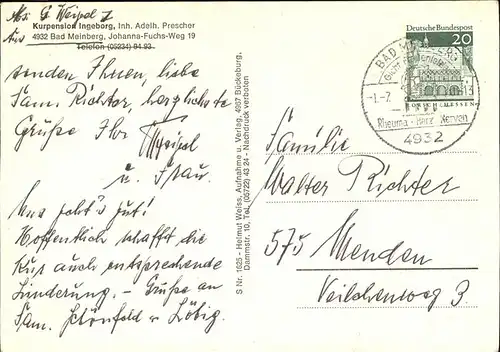 Abs. G Weipel
Kurpension Ingeborg, Inh. Adelh. Prescher
4932 Bad Meinberg, Johanna-Fuchs-Weg 19
Telefon (05234) 94 93
senden Ihnen, liebe
Fam. Richter, herzlichste
Grüße Ihr
Weipel
u. Frau
Uns geht's gut!
Hoffentlich schafft die
Kur auch entsprechende
Linderung. - Grüße an
Fam. Schönfeld u. Löbig.
S Nr. 1625 - Helmut Weiss, Aufnahme u. Verlag, 4967 Bückeburg,
Dammstr. 10, Tel. (05722) 43 24 - Nachdruck verboten
Deutsche Bundespost
20
LORSCH/HESSEN
BAD
Rheuma Herz Nerven
4932
Familie
Walter Richter
575 Menden
Veilchenweg 3.